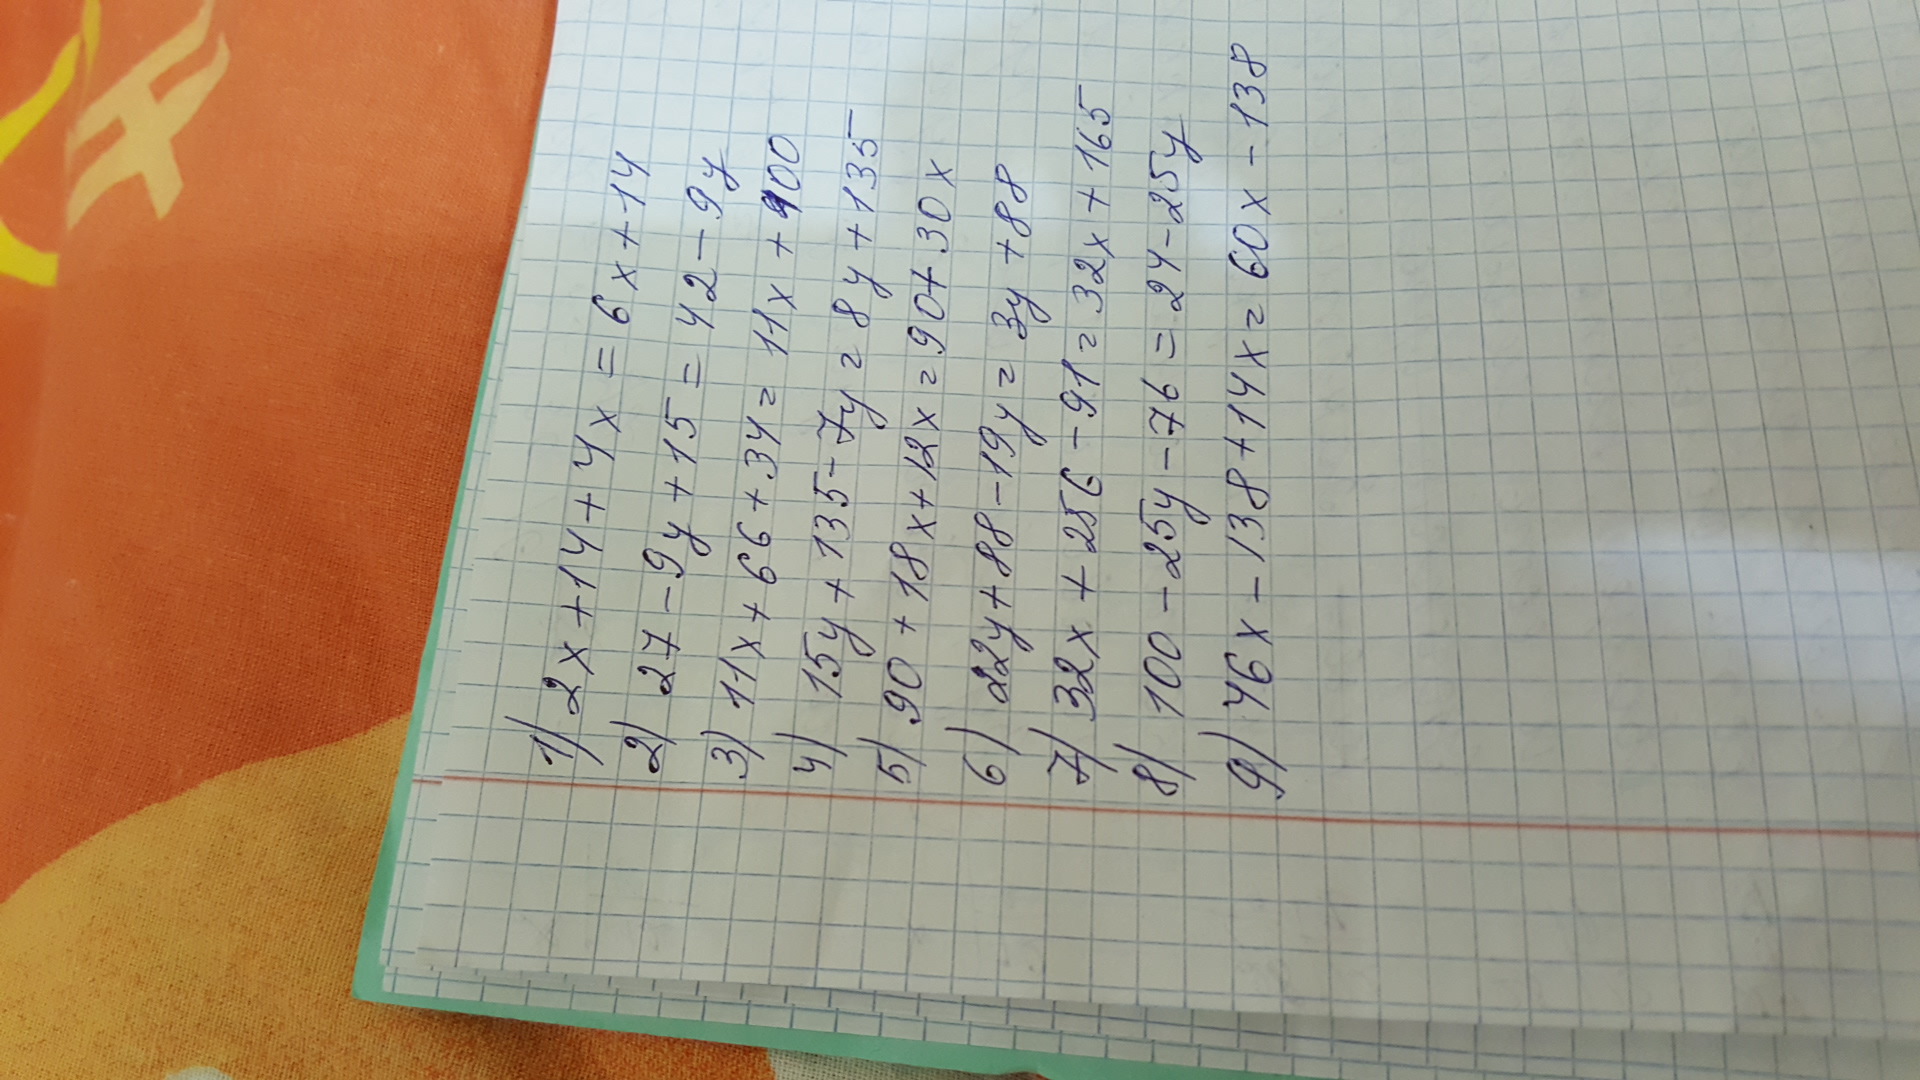 1) 2x + 14 + 4x = 6x + 14
2) 27 - 9y + 15 = 42 - 9y
3) 11x + 66 + 34 = 11x + 100
4) 15y + 135 - 7y = 8y + 135
5) 90 + 18x + 12x = 90 + 30x
6) 22y + 88 - 19y = 3y + 88
7) 32x + 256 - 91 = 32x + 165
8) 100 - 25y - 76 = 24 - 25y
9) 46x - 138 + 14x = 60x - 138